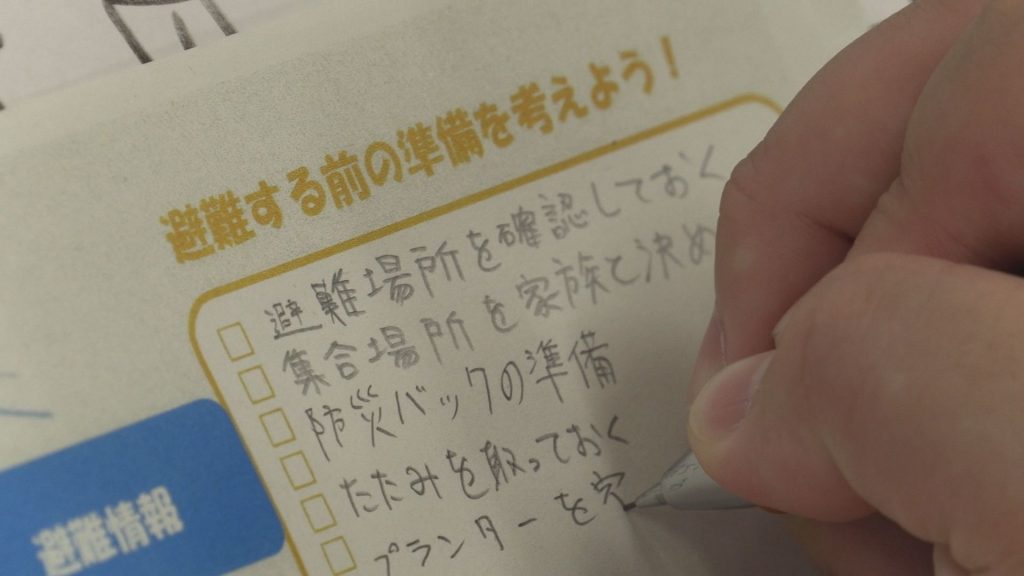 避難する前の準備を考えよう!
避難場所を確認しておく
集合場所を家族と決め
防災バックの準備
たたみを取っておく
プランターを穴
避難情報